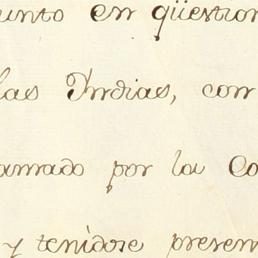 unto en qüestion
las Indias, con
amado por la Co
y tenidose presen